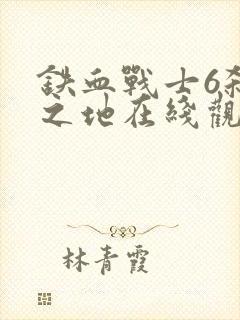 鉄血戰士6殺
之地在綫觀
林青霞